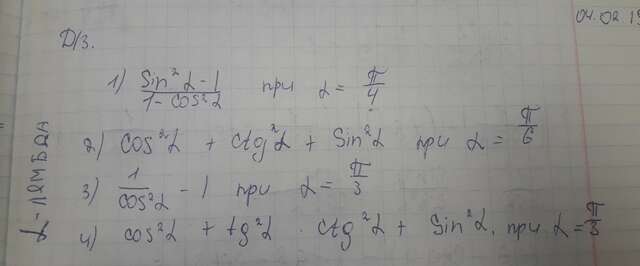 04.02.19
Д/З.
1) (Sin²α - 1)/(1 - cos²α) при α = π/4
2) cos²α + ctg²α + Sin²α при α = π/6
3) 1/cos²α - 1 при α = π/3
4) cos²α + tg²α · ctg²α + Sin²α, при α = π/3
α - ЛЯМБДА